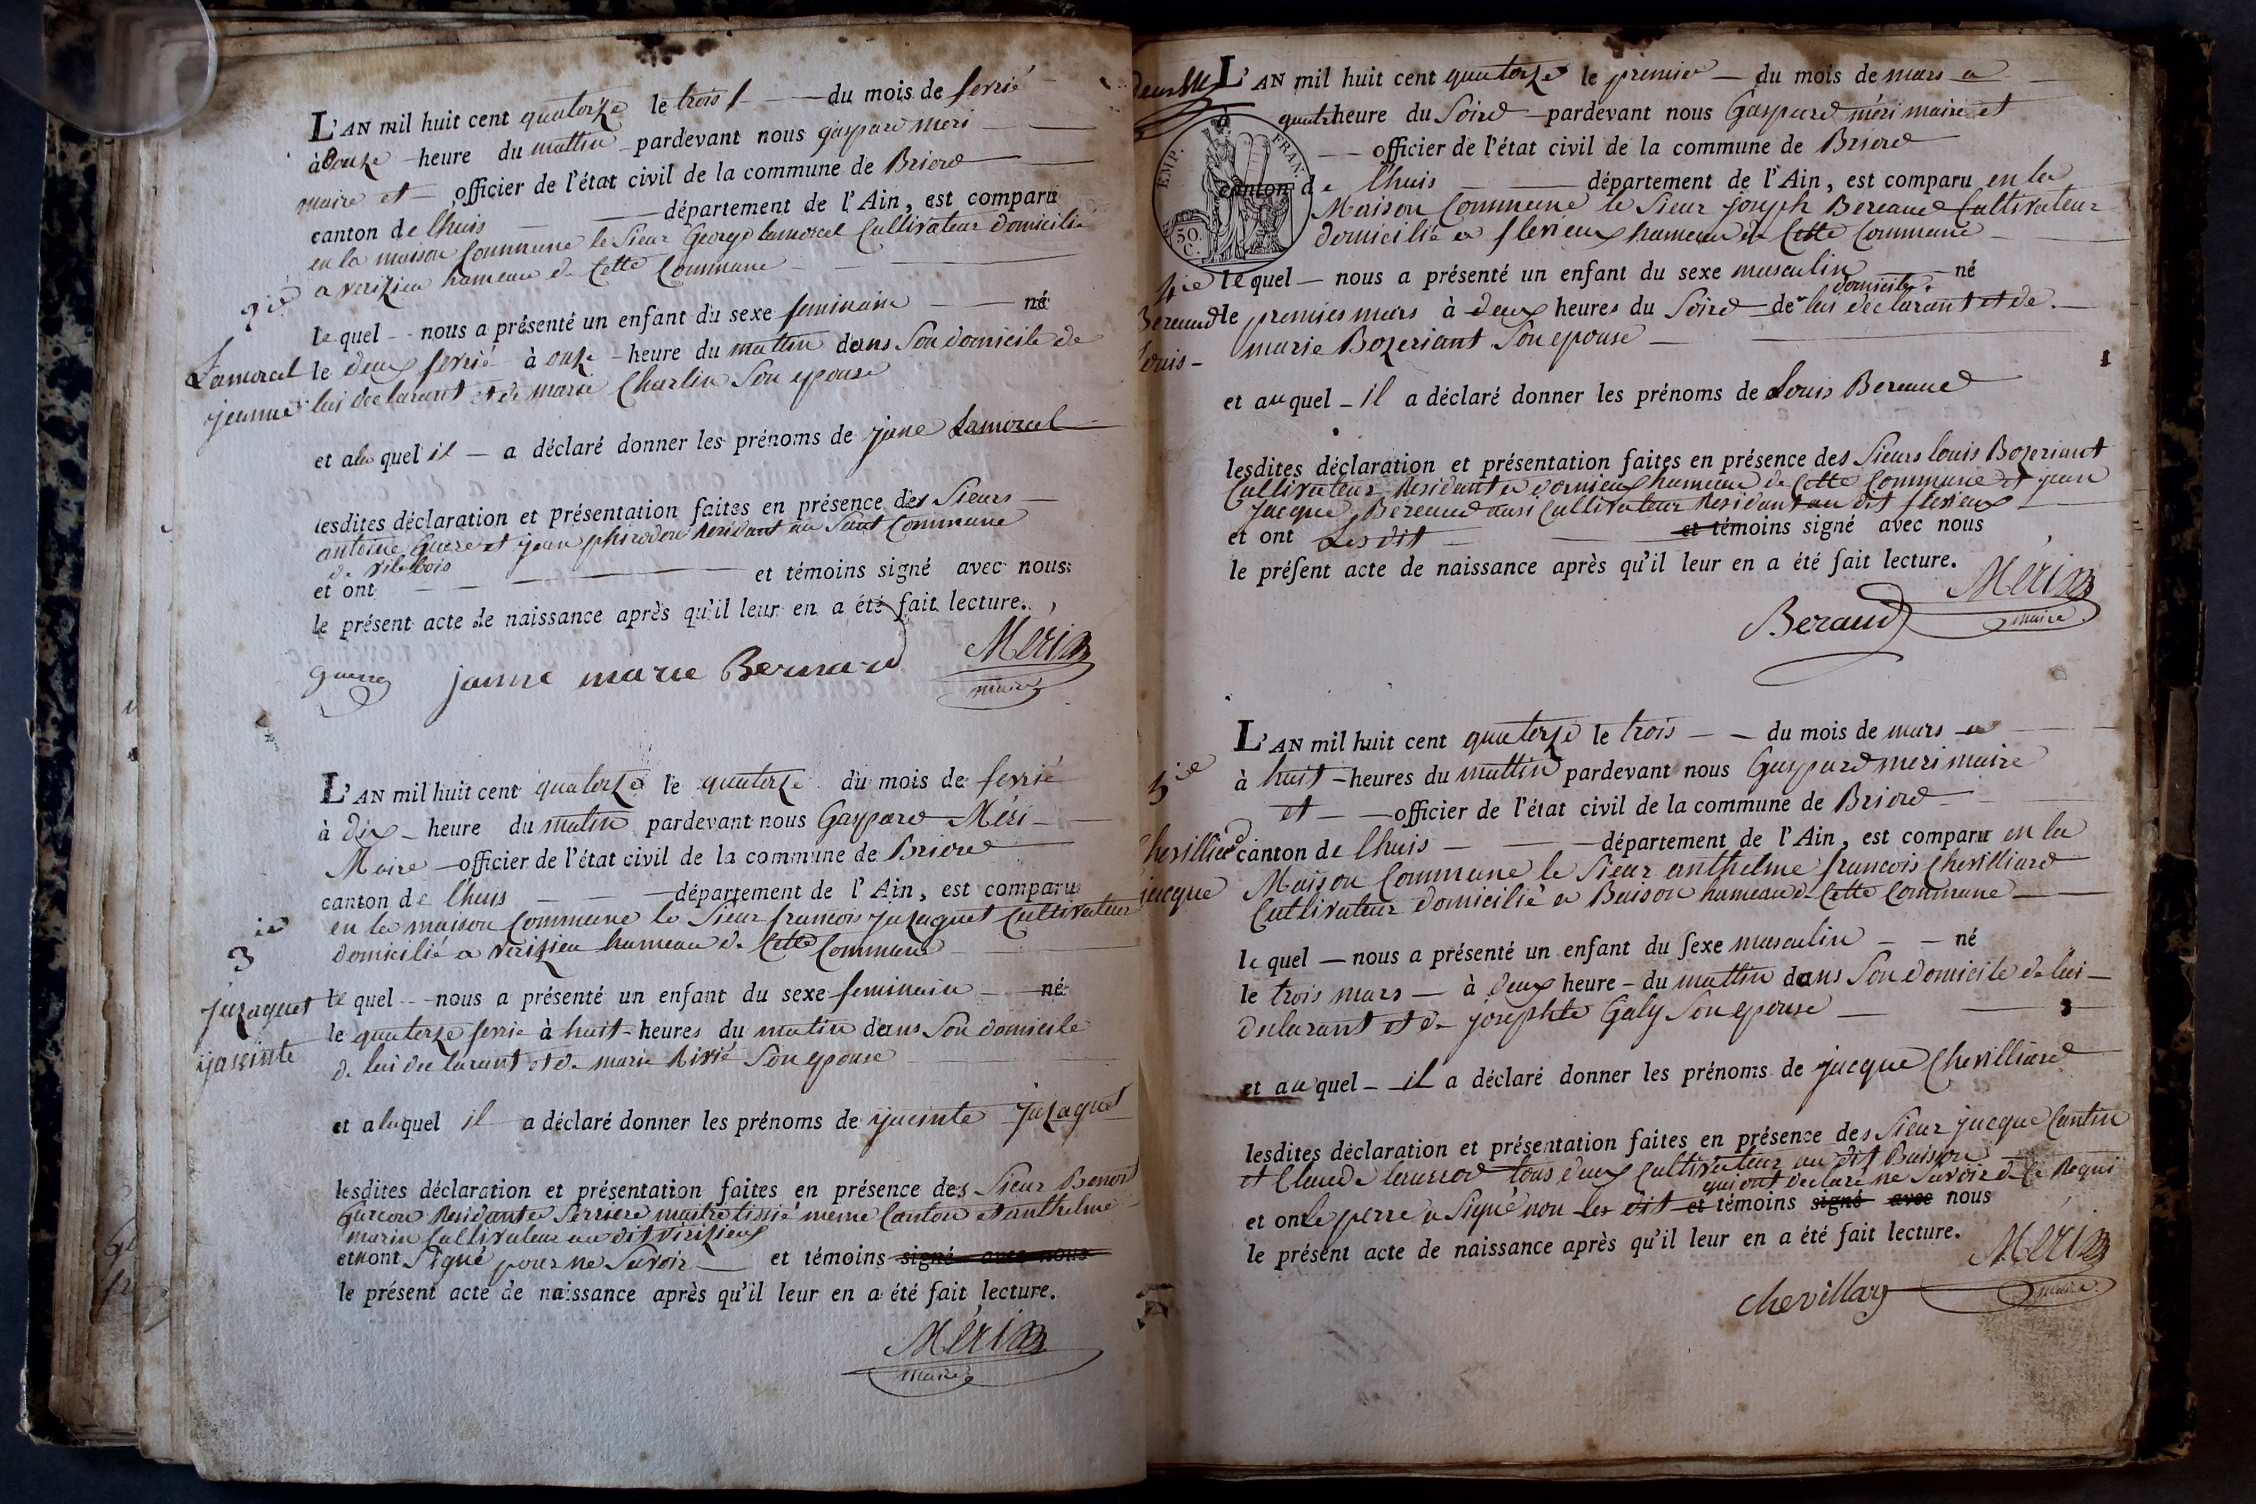 L'AN mil huit cent quatorze le trois du mois de fevrié
à onze heure du mattin pardevant nous gaspard meri
maire et officier de l'état civil de la commune de Briord
canton de lhuis département de l'Ain, est comparu
en la maison Commune le Sieur George Lamorcel Cultivateur domicilié
a verizieu hameau de Cette Commune
2ie
le quel nous a présenté un enfant du sexe feminain né
Lamorcel le deux fevrié à onze heure du mattin dans Son domicile de
jeanne lui declarant et de marie Charlin Son epouse
et a la quel il a déclaré donner les prénoms de jane Lamorcel
lesdites déclaration et présentation faites en présence des Sieurs
antoine Guere et jean Residant au Saut Commune
de vilebois
et ont et témoins signé avec nous
le présent acte de naissance après qu'il leur en a été fait lecture.
janne marie Bernard Meri
maire
L'AN mil huit cent quatorze le quatorze du mois de fevrié
à dix heure du matin pardevant nous Gaspard Méri
Maire officier de l'état civil de la commune de Briord
canton de lhuis département de l'Ain, est comparu
en la maison Commune le Sieur francois juzaquet Cultivateur
domicilié a verizieu hameau de Cette Commune
3ie
juzaquet le quel nous a présenté un enfant du sexe feminain né
le quatorze fevrie à huit heures du matin dans Son domicile
yaseinte de lui declarant et de marie Rivié Son epouse
et a la quel il a déclaré donner les prénoms de yacinte juzaquet
lesdites déclaration et présentation faites en présence des Sieur Benoit
Garcon Residant a Serriere maitre tissié meme Canton et anthelme
marin Cultivateur au dit vérizieu
et nont Signé pour ne Savoir et témoins signé avec nous
le présent acte de naissance après qu'il leur en a été fait lecture.
Méri
maire
L'AN mil huit cent quatorze le premier du mois de mars a
à quatr heure du Soird pardevant nous Gaspard méri maire et
officier de l'état civil de la commune de Briord
EMP. FRAN.
50 C.
canton de lhuis département de l'Ain, est comparu en la
Maison Commune le Sieur joseph Bereaud Cultivateur
domicilié a flevieux hameau de Cette Commune
4ie le quel nous a présenté un enfant du sexe masculin né
domicile
Bereaud le premier mars à deux heures du Soird de lui declarant et de
Louis marie Bozeriant Son epouse
et au quel il a déclaré donner les prénoms de Louis Bereaud
lesdites déclaration et présentation faites en présence des Sieurs louis Bozeriant
Cultivateur Residant a dornieux hameau de Cette Commune et jean
jacque Bereaud aussi Cultivateur Residant au dit flevieux
et ont Les dit et témoins signé avec nous
le présent acte de naissance après qu'il leur en a été fait lecture.
Méri
Beraud maire
L'AN mil huit cent quatorze le trois du mois de mars a
5ie
à huit heures du mattin pardevant nous Gaspard meri maire
et officier de l'état civil de la commune de Briord
Chevilliard canton de lhuis département de l'Ain, est comparu en la
jacque Maison Commune le Sieur anthelme francois Chevilliard
Cultivateur domicilié a Buison hameau de Cette Commune
le quel nous a présenté un enfant du sexe masculin né
le trois mars à deux heure du mattin dans Son domicile de lui
declarant et de josephte Galy Son epouse
et au quel il a déclaré donner les prénoms de jacque Chevilliard
lesdites déclaration et présentation faites en présence des Sieur jacque Cantin
et Claude tous deux Cultivateur au dit Buison
qui ont declaré ne Savoir de ce Requi
et ont le perre a Signé non les dit et témoins signé avec nous
le présent acte de naissance après qu'il leur en a été fait lecture.
Méri
chevillard maire